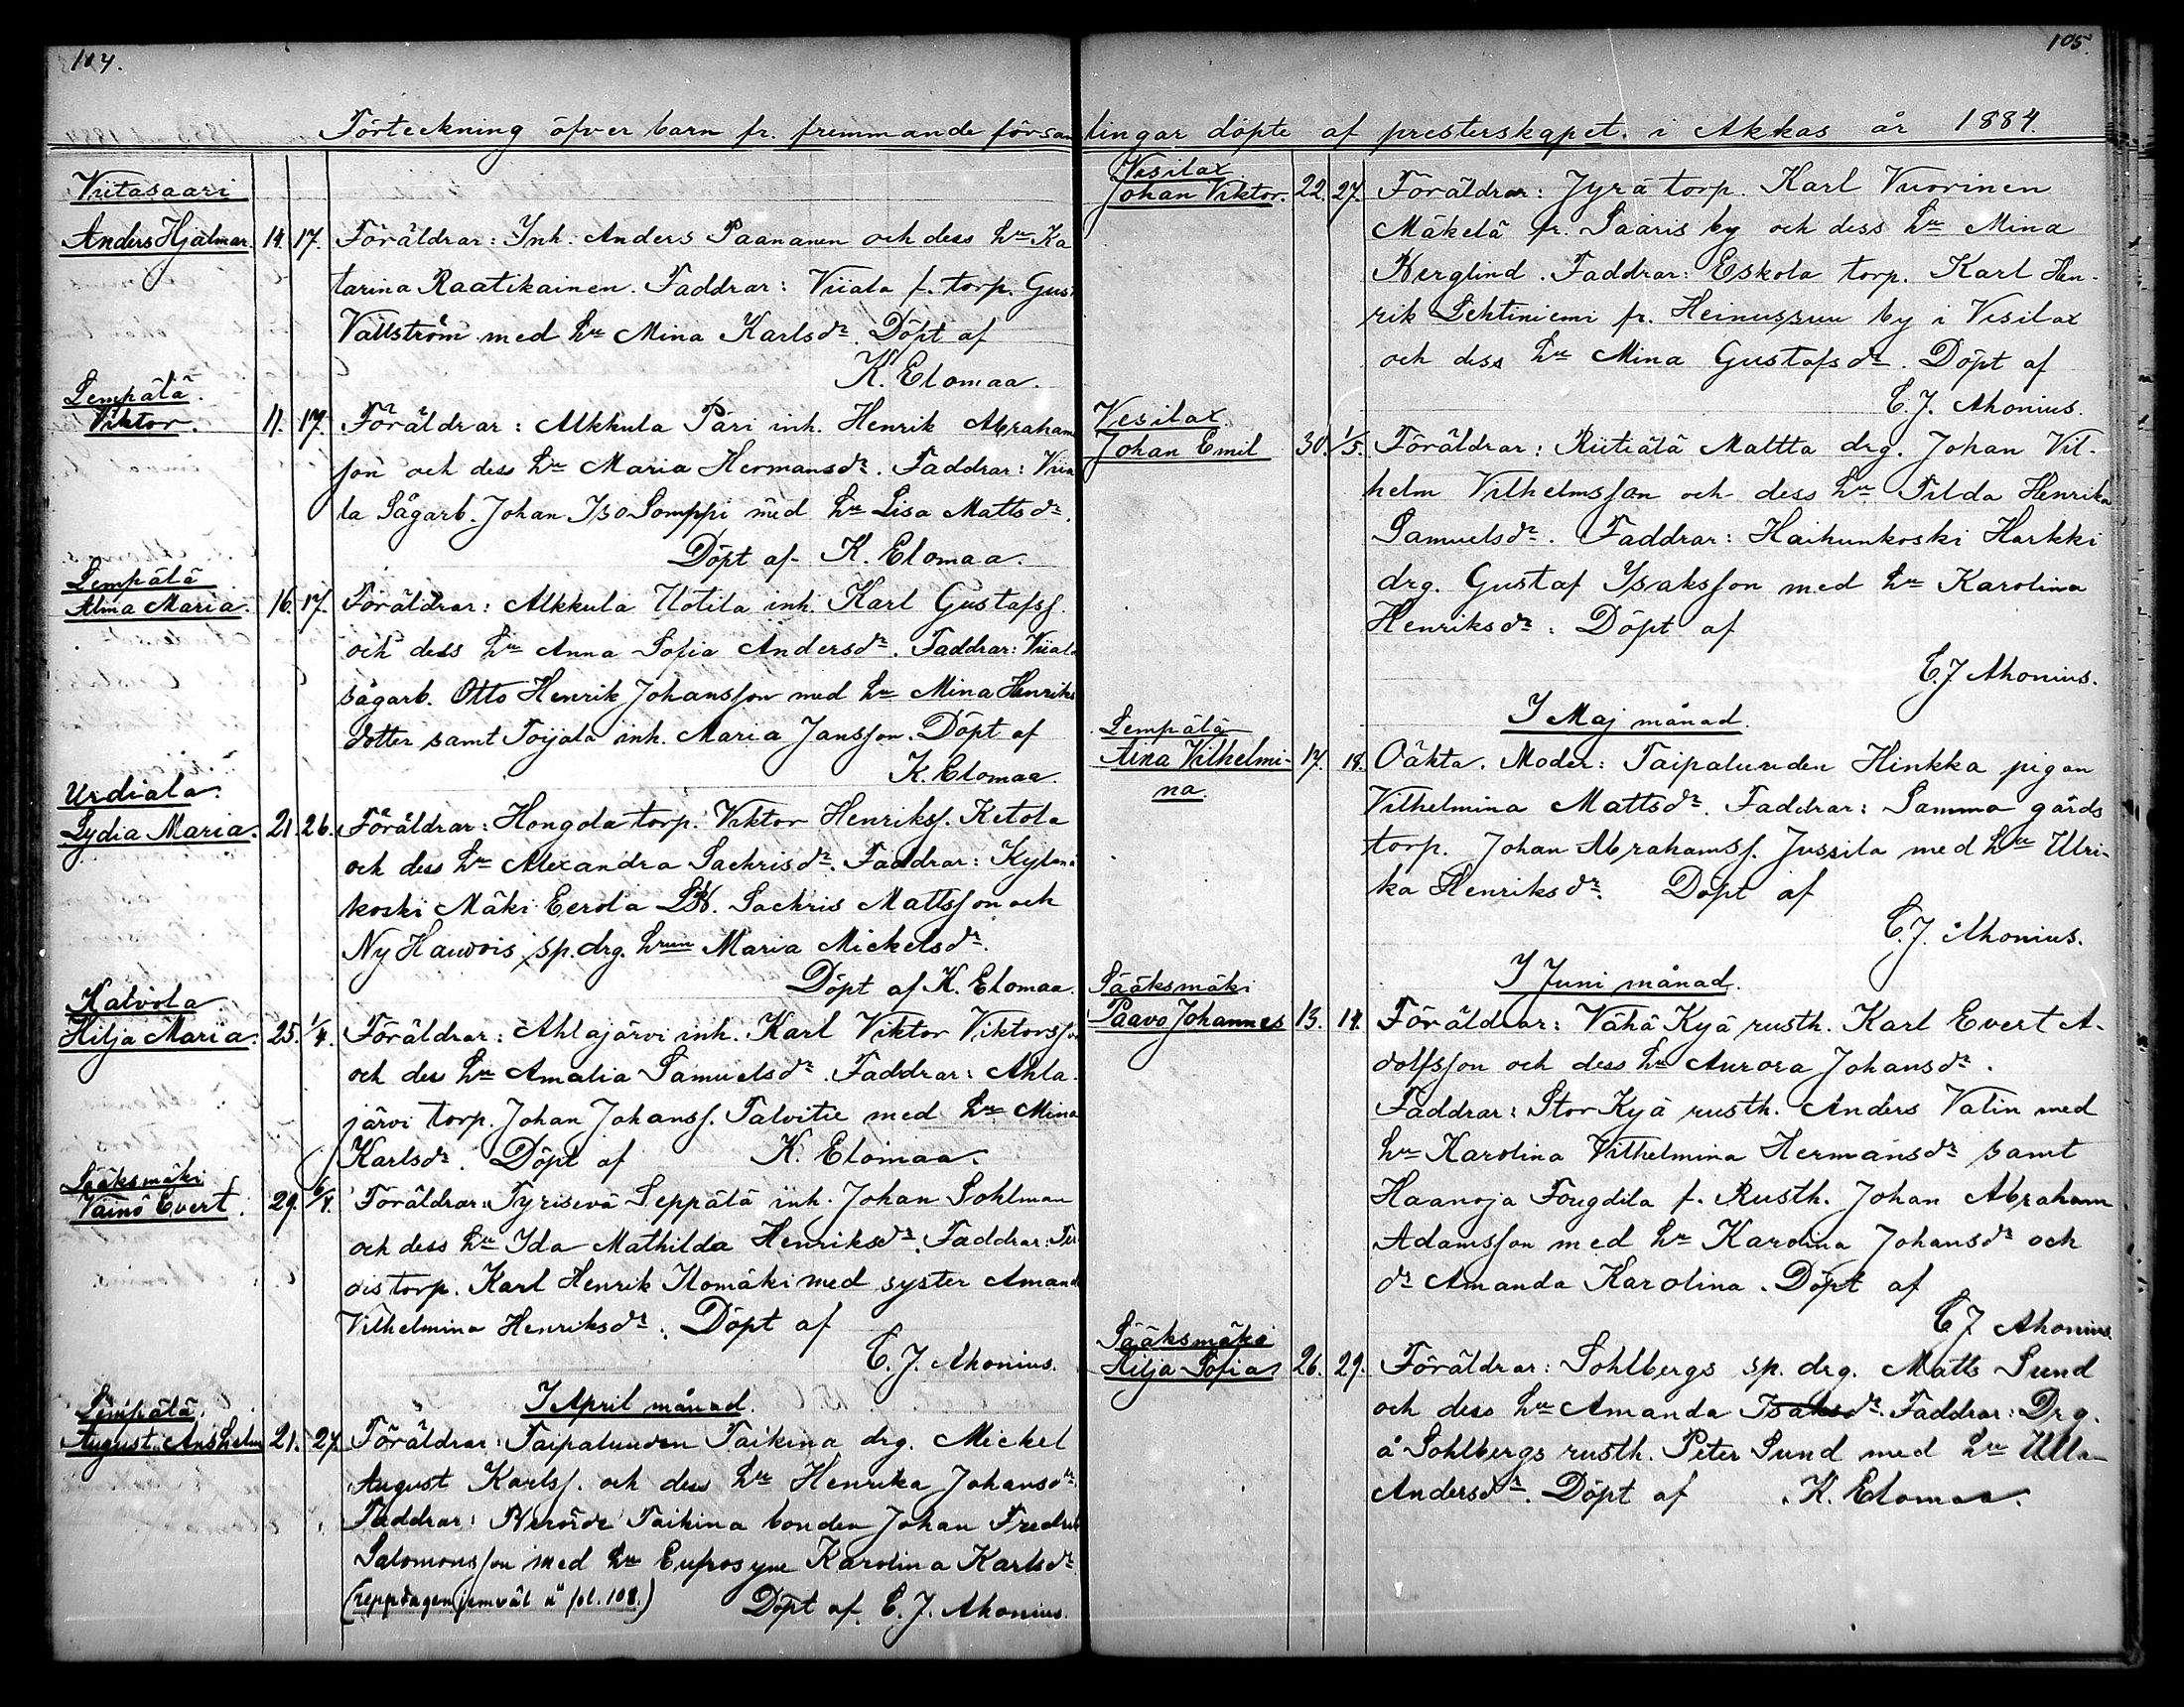 104.
Förteckning öfver barn fr. fremmande försam
Viitasaari
Anders Hjalmar. 14. 17. Föräldrar: Inh. Anders Paananen och dess hu Ka
tarina Raatikainen. Faddrar: Viiala f. torp. Gust
Vallström med hu Mina Karlsdr. Döpt af
K. Elomaa.
Lempälä.
Viktor. 11. 17. Föräldrar: Alkkula Pari inh. Henrik Abraham
son och dess hu Maria Hermansdr. Faddrar: Viia
la Sågarb. Johan Iso Somppi med hu Lisa Mattsdr.
Döpt af K. Elomaa.
Lempälä
Alma Maria. 16. 17. Föräldrar: Alkkula Uotila inh. Karl Gustafss.
och dess hu Anna Sofia Andersdr. Faddrar: Viiala
sågarb. Otto Henrik Johansson med hu Mina Henriks
dotter samt Toijala inh. Maria Jansson. Döpt af
K. Elomaa.
Urdiala.
Lydia Maria. 21. 26. Föräldrar: Hongola torp. Viktor Henrikss. Ketola
och dess hu Alexandra Sachrisdr. Faddrar: Kylmä
koski Mäki Eerola Sachris Mattsson och
Ny Hauvois sp. drg. hrun Maria Mickelsdr.
Döpt af K. Elomaa.
Kalvola
Hilja Maria. 25. 1/4. Föräldrar: Ahlajärvi inh. Karl Viktor Viktorsson
och dess hu Amalia Samuelsdr. Faddrar: Ahla-
järvi torp. Johan Johanss. Talvitie med hu Mina
Karlsdr. Döpt af K. Elomaa.
Sääksmäki
Väinö Evert. 29. 6/4. Föräldrar: Tyrisevä Seppälä inh. Johan Sohlman
och dess hu Ida Mathilda Henriksdr. Faddrar:
ois torp. Karl Henrik Ilomäki med syster Amanda
Vilhelmina Henriksdr. Döpt af
E. J. Ahonius.
I April månad.
Lempälä.
August Anshelm 21. 27. Föräldrar: Taipalunden Taikina drg. Mickel
August Karlss. och dess hu Henrika Johansdr.
Faddrar: Taikina bonden Johan Fredrik
Salomonsson med hu Eufrosyne Karolina Karlsdr.
(reppdagen jemväl å fol. 108.) Döpt af E. J. Ahonius.
105.
lingar döpte af presterskapet i Akkas år 1884.
Vesilax
Johan Viktor. 22. 27. Föräldrar: Jyrä torp. Karl Vuorinen
Mäkelä fr. Saaris by och dess hu Mina
Berglind. Faddrar: Eskola torp. Karl Hen-
rik Lehtiniemi fr. Heinussuu by i Vesilax
och dess hu Mina Gustafsdr. Döpt af
E. J. Ahonius.
Vesilax.
Johan Emil 30. 1/5. Föräldrar: Riitiälä Mattta drg. Johan Vil-
helm Vilhelmsson och dess hu Tilda Henrika
Samuelsdr. Faddrar: Haihunkoski Harkki
drg. Gustaf Isaksson med hu Karolina
Henriksdr. Döpt af
E. J. Ahonius.
I Maj månad.
Lempälä
Aina Vilhelmi- 17. 18. Oäkta. Moder: Taipalunden Hinkka pigan
na. Vilhelmina Mattsdr. Faddrar: Samma gårds
torp. Johan Abrahamss. Jussila med hu Ulri-
ka Henriksdr. Döpt af
E. J. Ahonius.
I Juni månad.
Sääksmäki
Paavo Johannes 13. 14. Föräldrar: Vähä Kyä rusth. Karl Evert A-
dolfsson och dess hu Aurora Johansdr.
Faddrar: Stor Kyä rusth. Anders Valin med
hu Karolina Vilhelmina Hermansdr samt
Haanoja Fougdila f. Rusth. Johan Abraham
Adamsson med hu Karolina Johansdr och
dr Amanda Karolina. Döpt af
E. J. Ahonius.
Sääksmäki
Hilja Sofia 26. 29. Föräldrar: Sohlbergs sp. drg. Matts Sund
och dess hu Amanda Isaksdr. Faddrar: Drg.
å Sohlbergs rusth. Peter Sund med hu Ulla
Andersdr. Döpt af K. Elomaa.